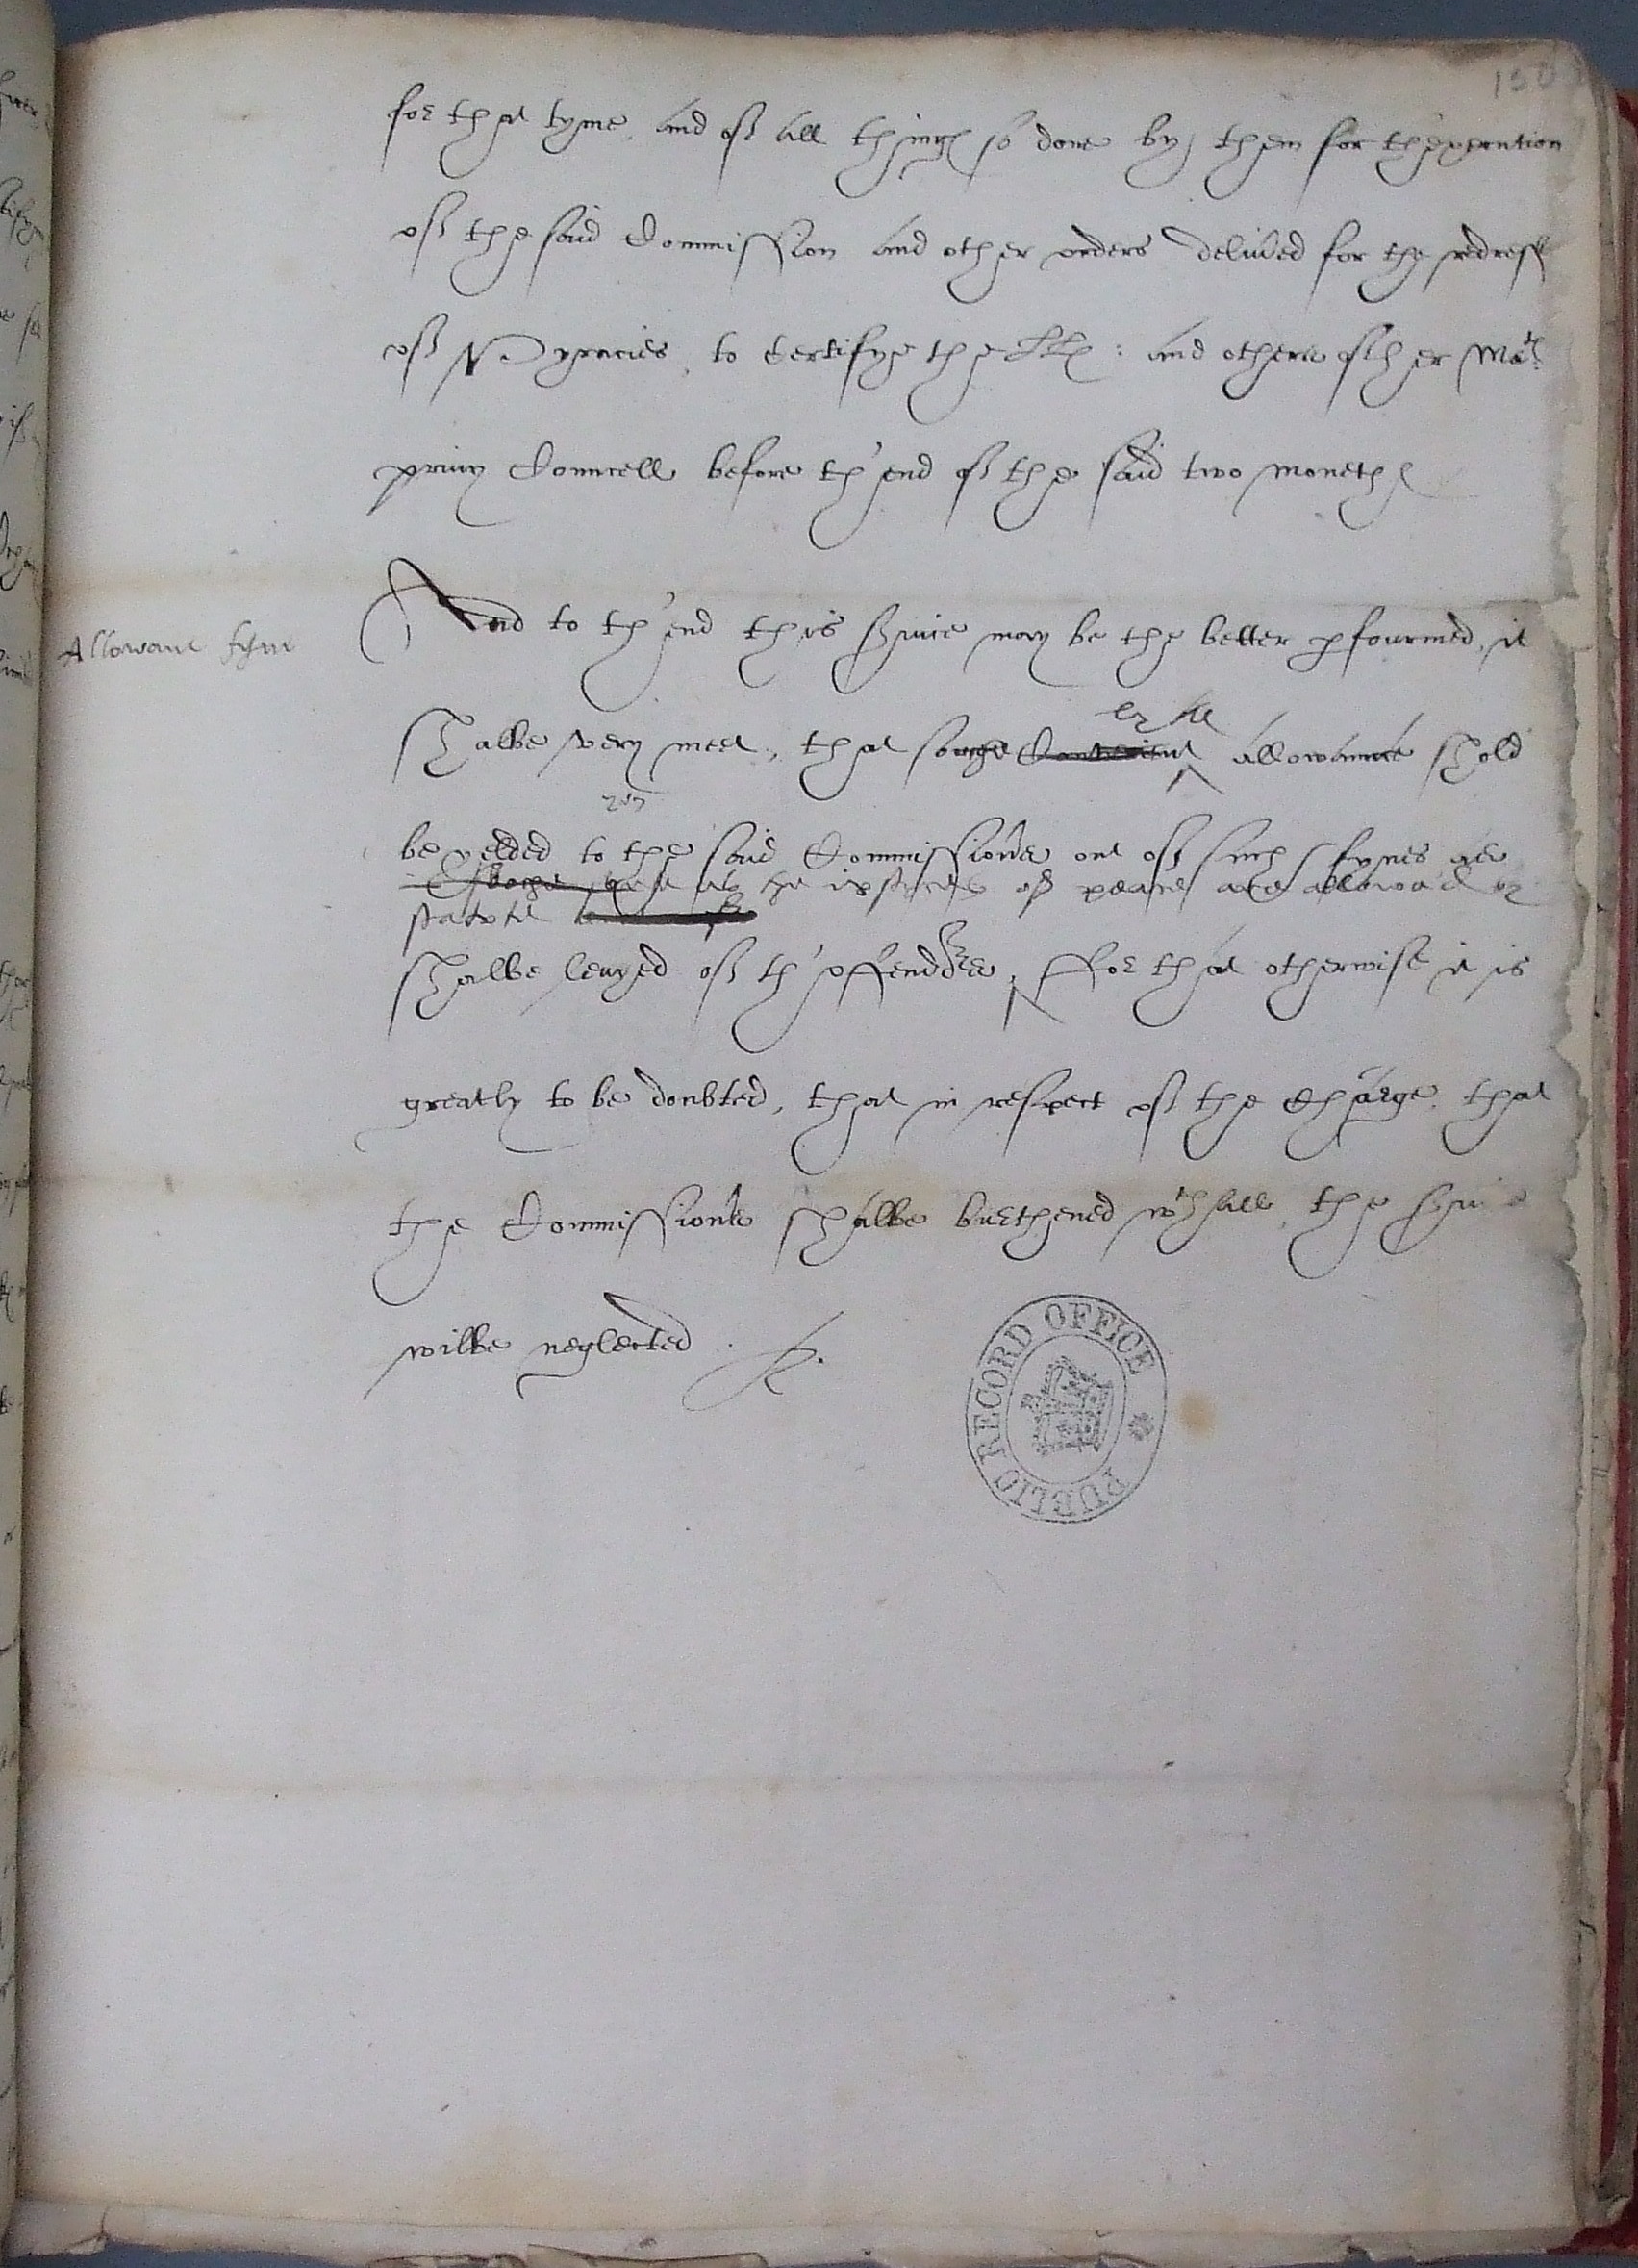 150
for that tyme, and of all things so done by them for thexecution
of the said Commission and other orders delived for the redresse
of Pyracies, to certifye the LLs: and others of her Mats
privy Councell before th'end of the said two moneths
And to th'end this svice may be the better pfourmed, it
Allowanc
shalbe very meet, that some allowance shold
be yelded to the said Commissionrs out of such fynes as
as the iustices of peace are allowed by
statute
shalbe levyed of th'offendors, ffor that otherwise it is
greatly to be doubted, that in respect of the charge that
the Commissionrs shalbe burthened wthall, the svice
wilbe neglected.
PUBLIC RECORD OFFICE